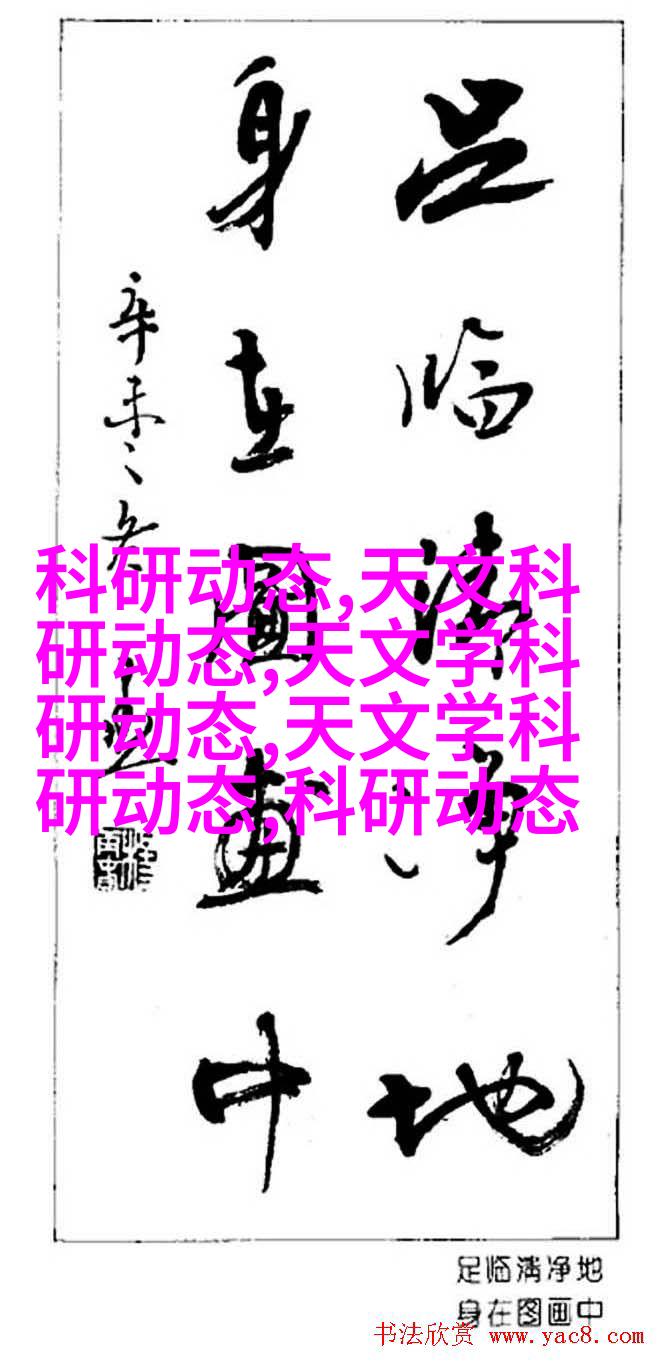 足临清净地
身在圖畫中
辛未之冬
科研动态,天文科
研动态,天文学科
研动态,天文学科
研动态,科研动态
足临清净地
身在图画中
书法欣赏 www.yac8.com